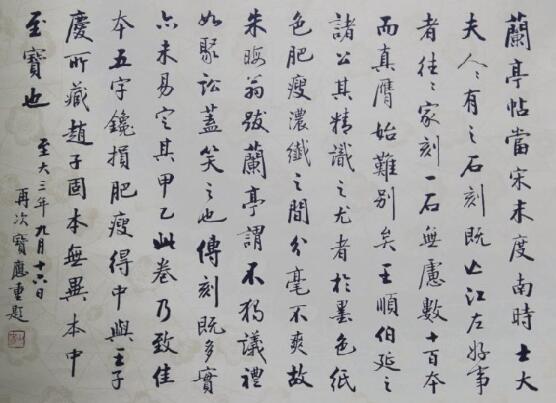 蘭亭帖當宋未度南時士大
夫人人有之石刻既亡江左好事
者往往家刻一石無慮數十百本
而真贗始難別矣王順伯延之
諸公其精識之尤者於墨色紙
色肥瘦濃纖之間分毫不爽故
朱晦翁跋蘭亭謂不獨議禮
如聚訟蓋笑之也傳刻既多實
亦未易定其甲乙此卷乃致佳
本五字鑱損肥瘦得中與王子
慶所藏趙子固本無異本中
至寶也
至大三年九月十六日
再次寶應重題